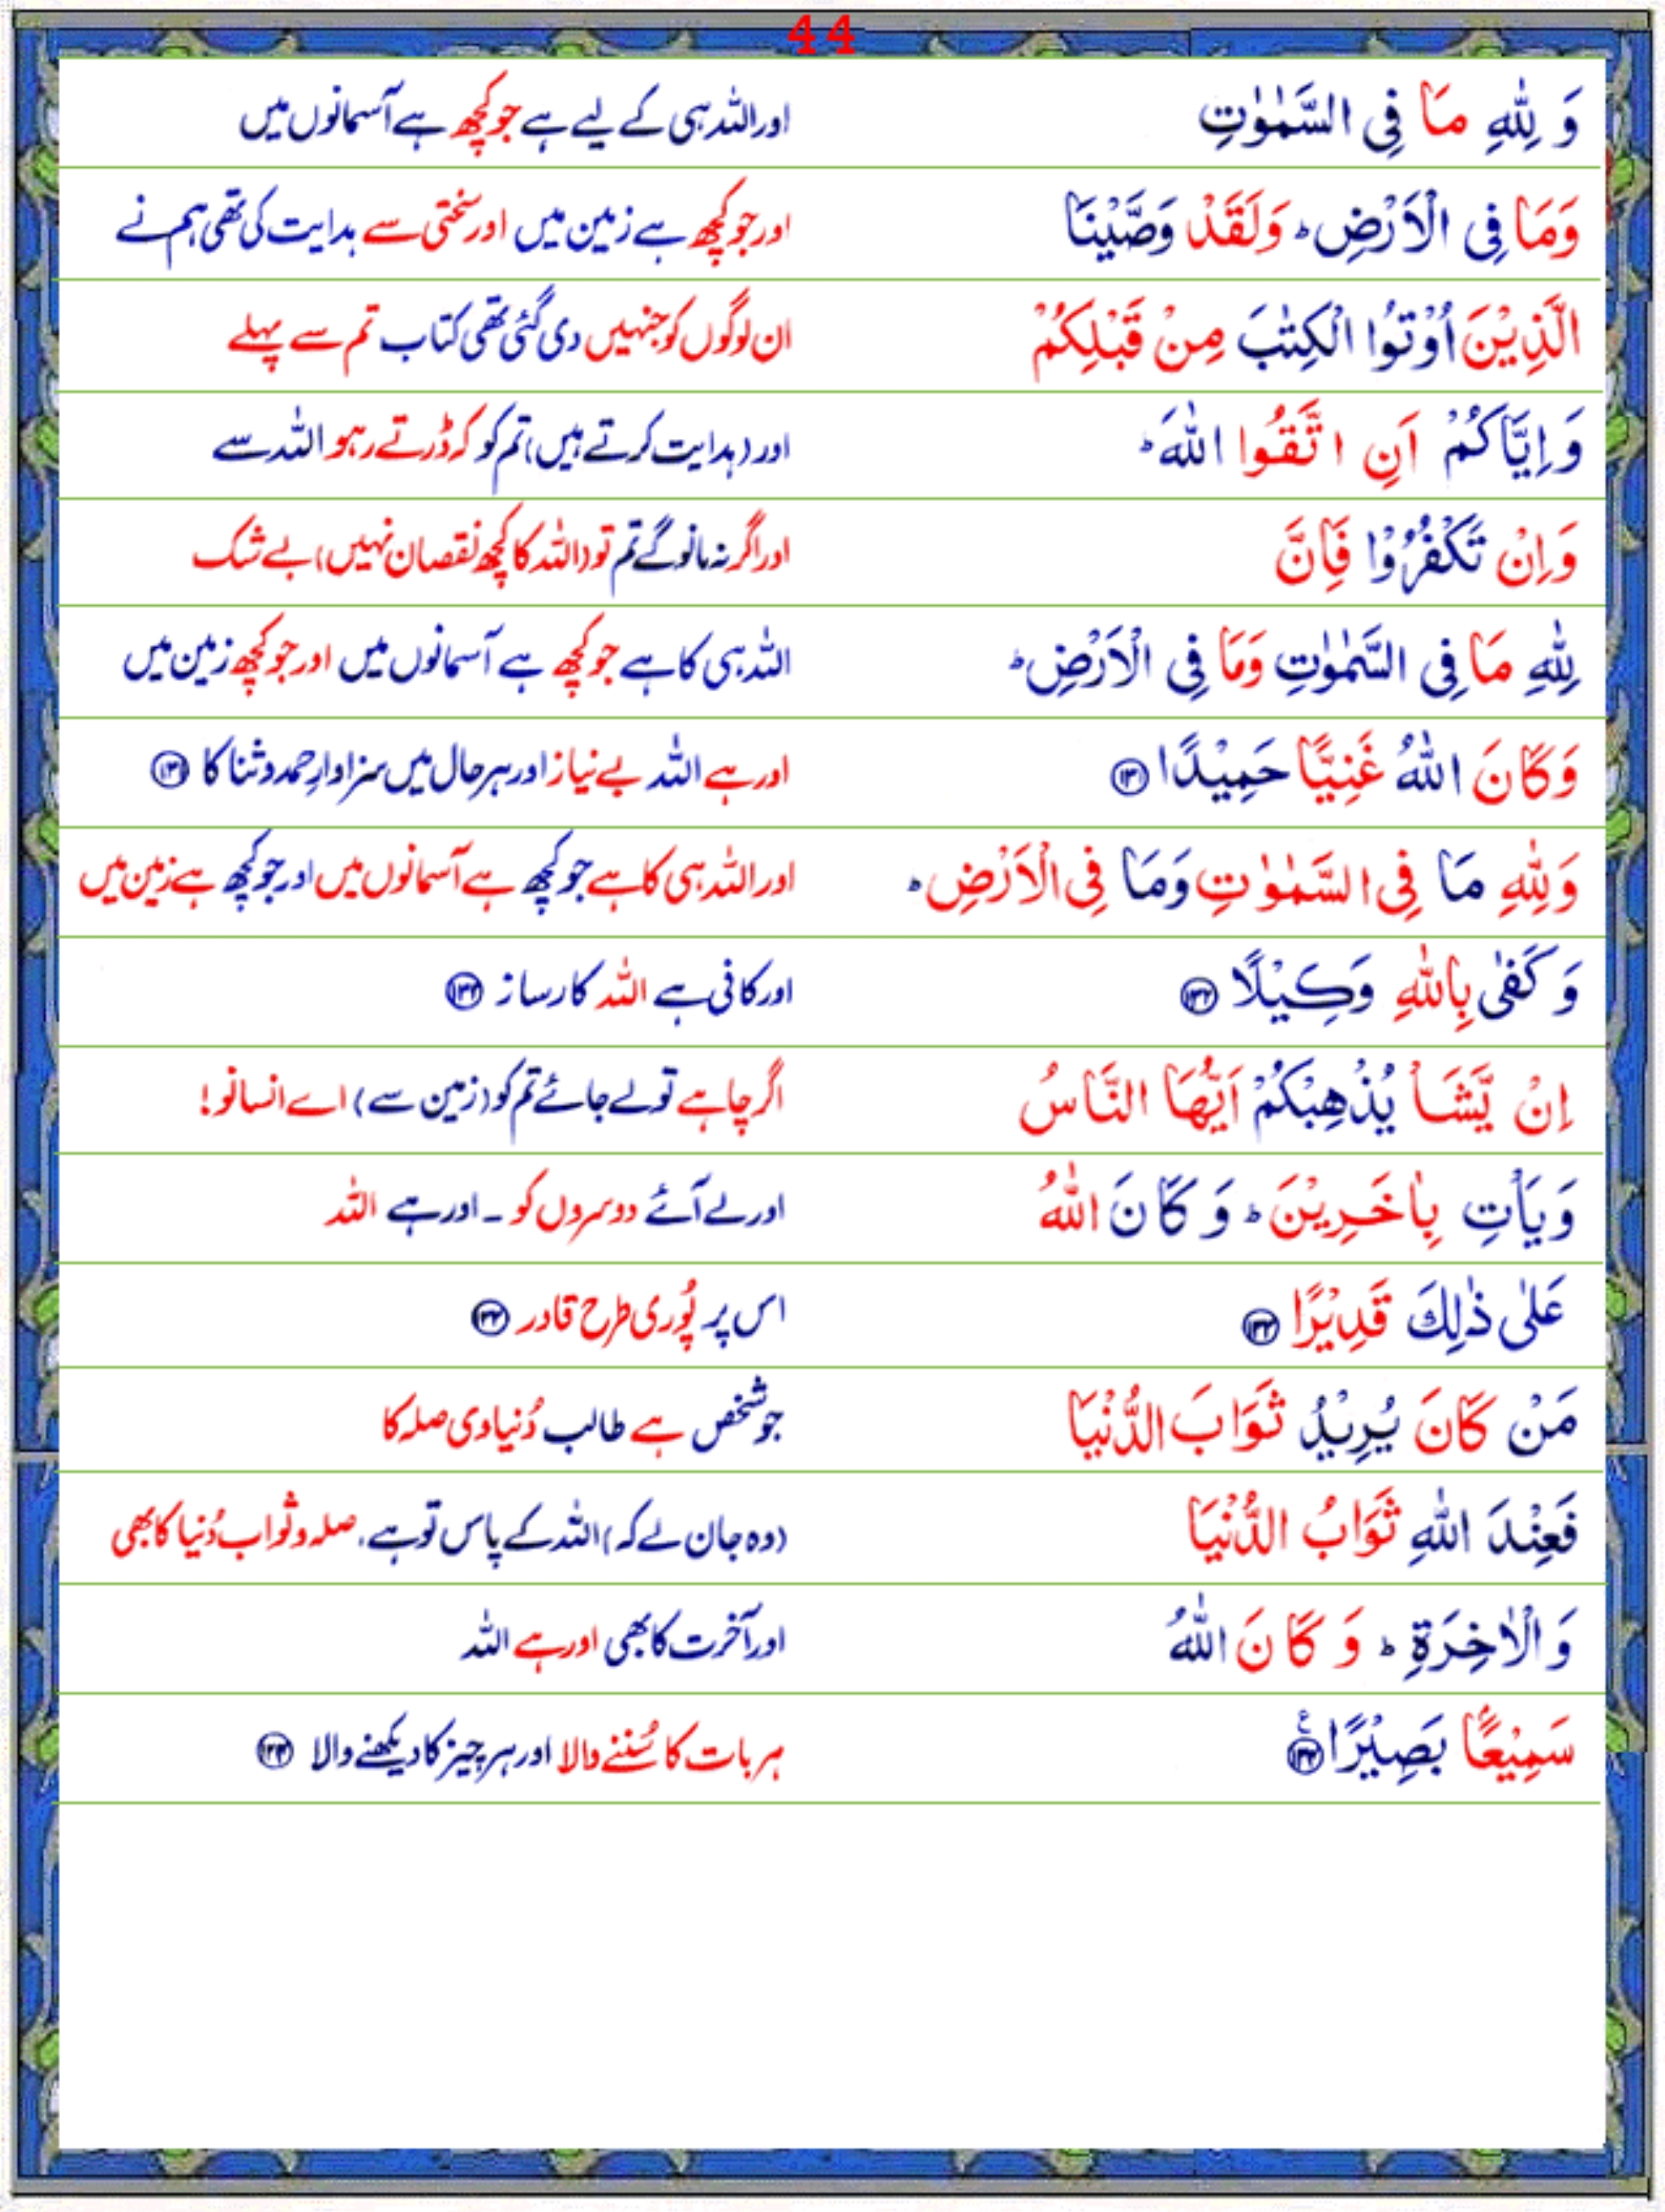 44
وَ لِلّٰهِ مَا فِی السَّمٰوٰتِ اور اللہ ہی کے لیے ہے جو کچھ ہے آسمانوں میں
وَمَا فِی الْاَرْضِ ؕ وَلَقَدْ وَصَّیْنَا اور جو کچھ ہے زمین میں اور سختی سے ہدایت کی تھی ہم نے
الَّذِیْنَ اُوْتُوا الْكِتٰبَ مِنْ قَبْلِكُمْ ان لوگوں کو جنہیں دی گئی تھی کتاب تم سے پہلے
وَاِیَّاكُمْ اَنِ اتَّقُوا اللّٰهَ ؕ اور (ہدایت کرتے ہیں) تم کو کہ ڈرتے رہو اللہ سے
وَاِنْ تَكْفُرُوْا فَاِنَّ اور اگر نہ مانو گے تم تو (اللہ کا کچھ نقصان نہیں) بے شک
لِلّٰهِ مَا فِی السَّمٰوٰتِ وَمَا فِی الْاَرْضِ ؕ اللہ ہی کا ہے جو کچھ ہے آسمانوں میں اور جو کچھ زمین میں
وَكَانَ اللّٰهُ غَنِیًّا حَمِیْدًا ۱۳۱ اور ہے اللہ بے نیاز اور ہر حال میں سزاوارِ حمد و ثنا کا ۱۳۱
وَلِلّٰهِ مَا فِی السَّمٰوٰتِ وَمَا فِی الْاَرْضِ ؕ اور اللہ ہی کا ہے جو کچھ ہے آسمانوں میں اور جو کچھ ہے زمین میں
وَ كَفٰی بِاللّٰهِ وَكِیْلًا ۱۳۲ اور کافی ہے اللہ کارساز ۱۳۲
اِنْ یَّشَاْ یُذْهِبْكُمْ اَیُّهَا النَّاسُ اگر چاہے تو لے جائے تم کو (زمین سے) اے انسانو!
وَیَاْتِ بِاٰخَرِیْنَ ؕ وَ كَانَ اللّٰهُ اور لے آئے دوسروں کو ۔ اور ہے اللہ
عَلٰی ذٰلِكَ قَدِیْرًا ۱۳۳ اس پر پُوری طرح قادر ۱۳۳
مَنْ كَانَ یُرِیْدُ ثَوَابَ الدُّنْیَا جو شخص ہے طالب دُنیاوی صلہ کا
فَعِنْدَ اللّٰهِ ثَوَابُ الدُّنْیَا (وہ جان لے کہ) اللہ کے پاس تو ہے، صلہ و ثواب دُنیا کا بھی
وَ الْاٰخِرَةِ ؕ وَ كَانَ اللّٰهُ اور آخرت کا بھی اور ہے اللہ
سَمِیْعًۢا بَصِیْرًا ۱۳۴ ع ہر بات کا سُننے والا اور ہر چیز کا دیکھنے والا ۱۳۴